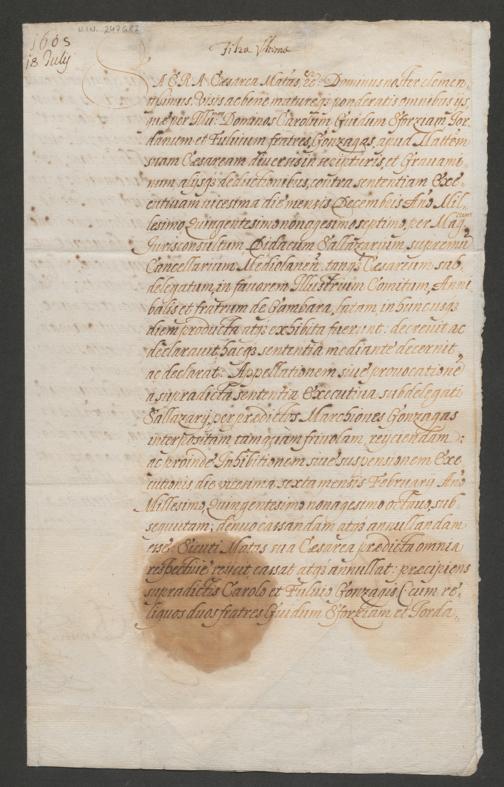 1605
18 July
VIN. 247682
Filza Ultima
SACRA Cæsarea Matas, etc. Dominus noster clemen
tissimus, Visis ac bene mature q3 ponderatis omnibus ijs,
quæ per Illres Donanos Carolum, Guidum Sforziam, Jor
danum et Fuluium fratres, Gonzagas, apud Mattem
suam Cæsaream, diuersis in scripturis et Grauami
num alijsq3 deductionibus, contra sententiam Exe
cutiuam vicesima die mensis Decembris Año Mil
lesimo Quingentesimo nonagesimo septimo, per Magcum
Jurisconsultum Didacum Sallazarium, supremū
Cancellarium Mediolaneñ, tanq3 Cæsareum sub
delegatum, in fauorem Illustrium Comitum, Anni
balis et fratrum de Gambara, latam, in hunc usq3
diem producta atq3 exhibita fuerint: decreuit ac
declarauit hacq3 sententia mediante decernit
ac declarat: Appellationem siue prouocationē
a supradicta sententia Executiua subdelegati
Sallazarij, per predictos Marchiones Gonzagas
interpositam, tamquam friuolam, reijciendam:
ac proinde Inhibitionem siue suspensionem Exe
cutionis die vicesima sexta mensis Februarij Año
Millesimo Quingentesimo nonagesimo octauo sub
sequutam; denuo cassandam atq3 annullandam
esse. Sicuti Matas sua Cæsarea predicta omnia
respectiue reucit, cassat atq3 annullat: precipiens
supradictis Carolo et Fuluio Gonzagis (cum re
liquos duos fratres Guidum Sforziam et Jorda